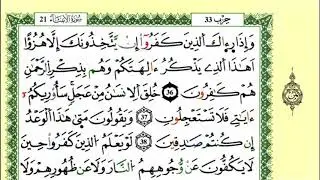 21 سورة الأنبياء حزب 33
وَإِذَا رَءَاكَ ٱلَّذِينَ كَفَرُوٓا۟ إِنْ يَّتَّخِذُونَكَ إِلَّا هُزُؤًا
أَهَٰذَا ٱلَّذِى يَذْكُرُ ءَالِهَتَكُمْ وَهُم بِذِكْرِ ٱلرَّحْمَٰنِ
هُمْ كَٰفِرُونَ 36 خُلِقَ ٱلْإِنسَٰنُ مِنْ عَجَلٍ سَأُو۟رِيكُمْ
ءَايَٰتِى فَلَا تَسْتَعْجِلُونِ 37 وَيَقُولُونَ مَتَىٰ هَٰذَا ٱلْوَعْدُ
إِن كُنتُمْ صَٰدِقِينَ 38 لَوْ يَعْلَمُ ٱلَّذِينَ كَفَرُوا۟ حِينَ
لَا يَكُفُّونَ عَن وُجُوهِهِمُ ٱلنَّارَ وَلَا عَن ظُهُورِهِمْ وَلَا